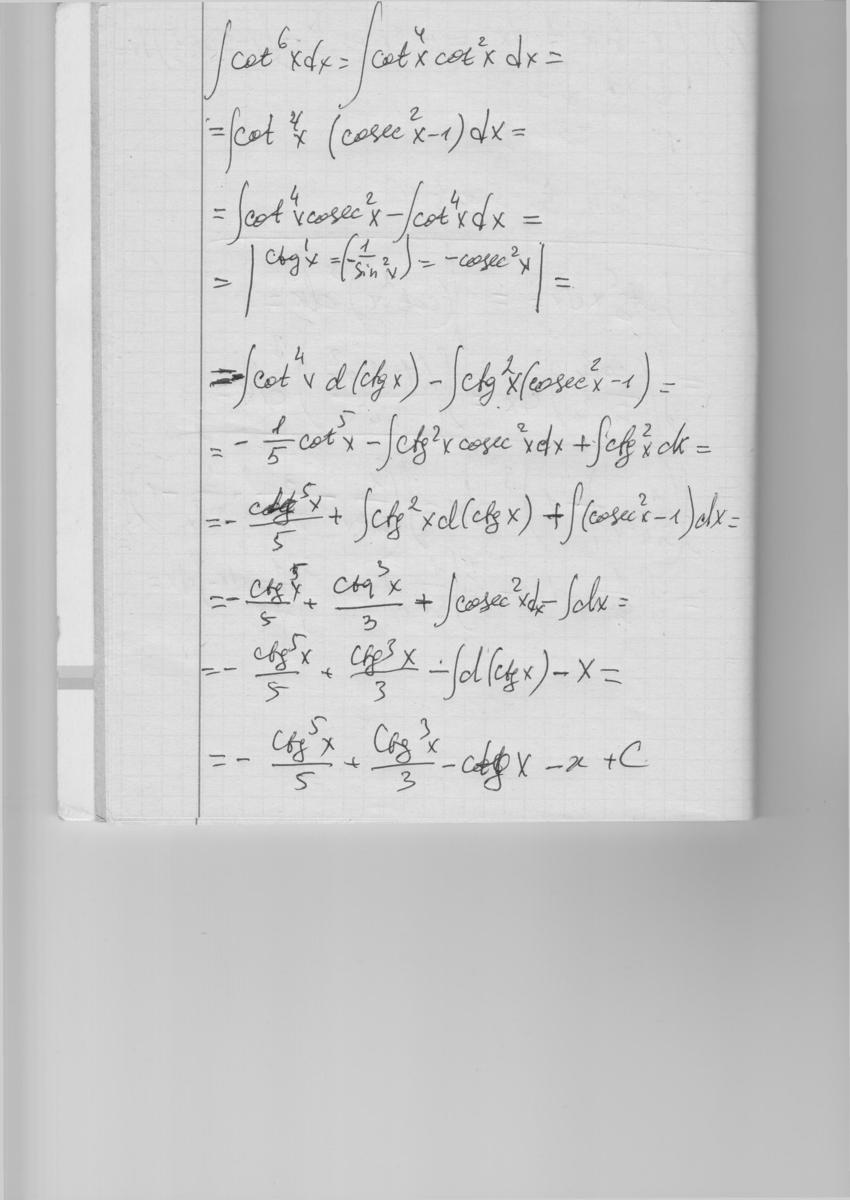 ∫cot⁶xdx = ∫cot⁴x cot²x dx =
= ∫cot⁴x (cosec²x-1)dx =
= ∫cot⁴x cosec²x - ∫cot⁴x dx =
= | ctg'x = (-1/sin²x) = -cosec²x | =
= ∫cot⁴x d(ctgx) - ∫ctg²x(cosec²x-1) =
= - 1/5 cot⁵x - ∫ctg²x cosec²xdx + ∫ctg²x dx =
= - ctg⁵x/5 + ∫ctg²xd(ctgx) + ∫(cosec²x-1)dx =
= - ctg⁵x/5 + ctg³x/3 + ∫cosec²xdx - ∫dx =
= - ctg⁵x/5 + ctg³x/3 - ∫d(ctgx) - x =
= - ctg⁵x/5 + ctg³x/3 - ctgx - x + C